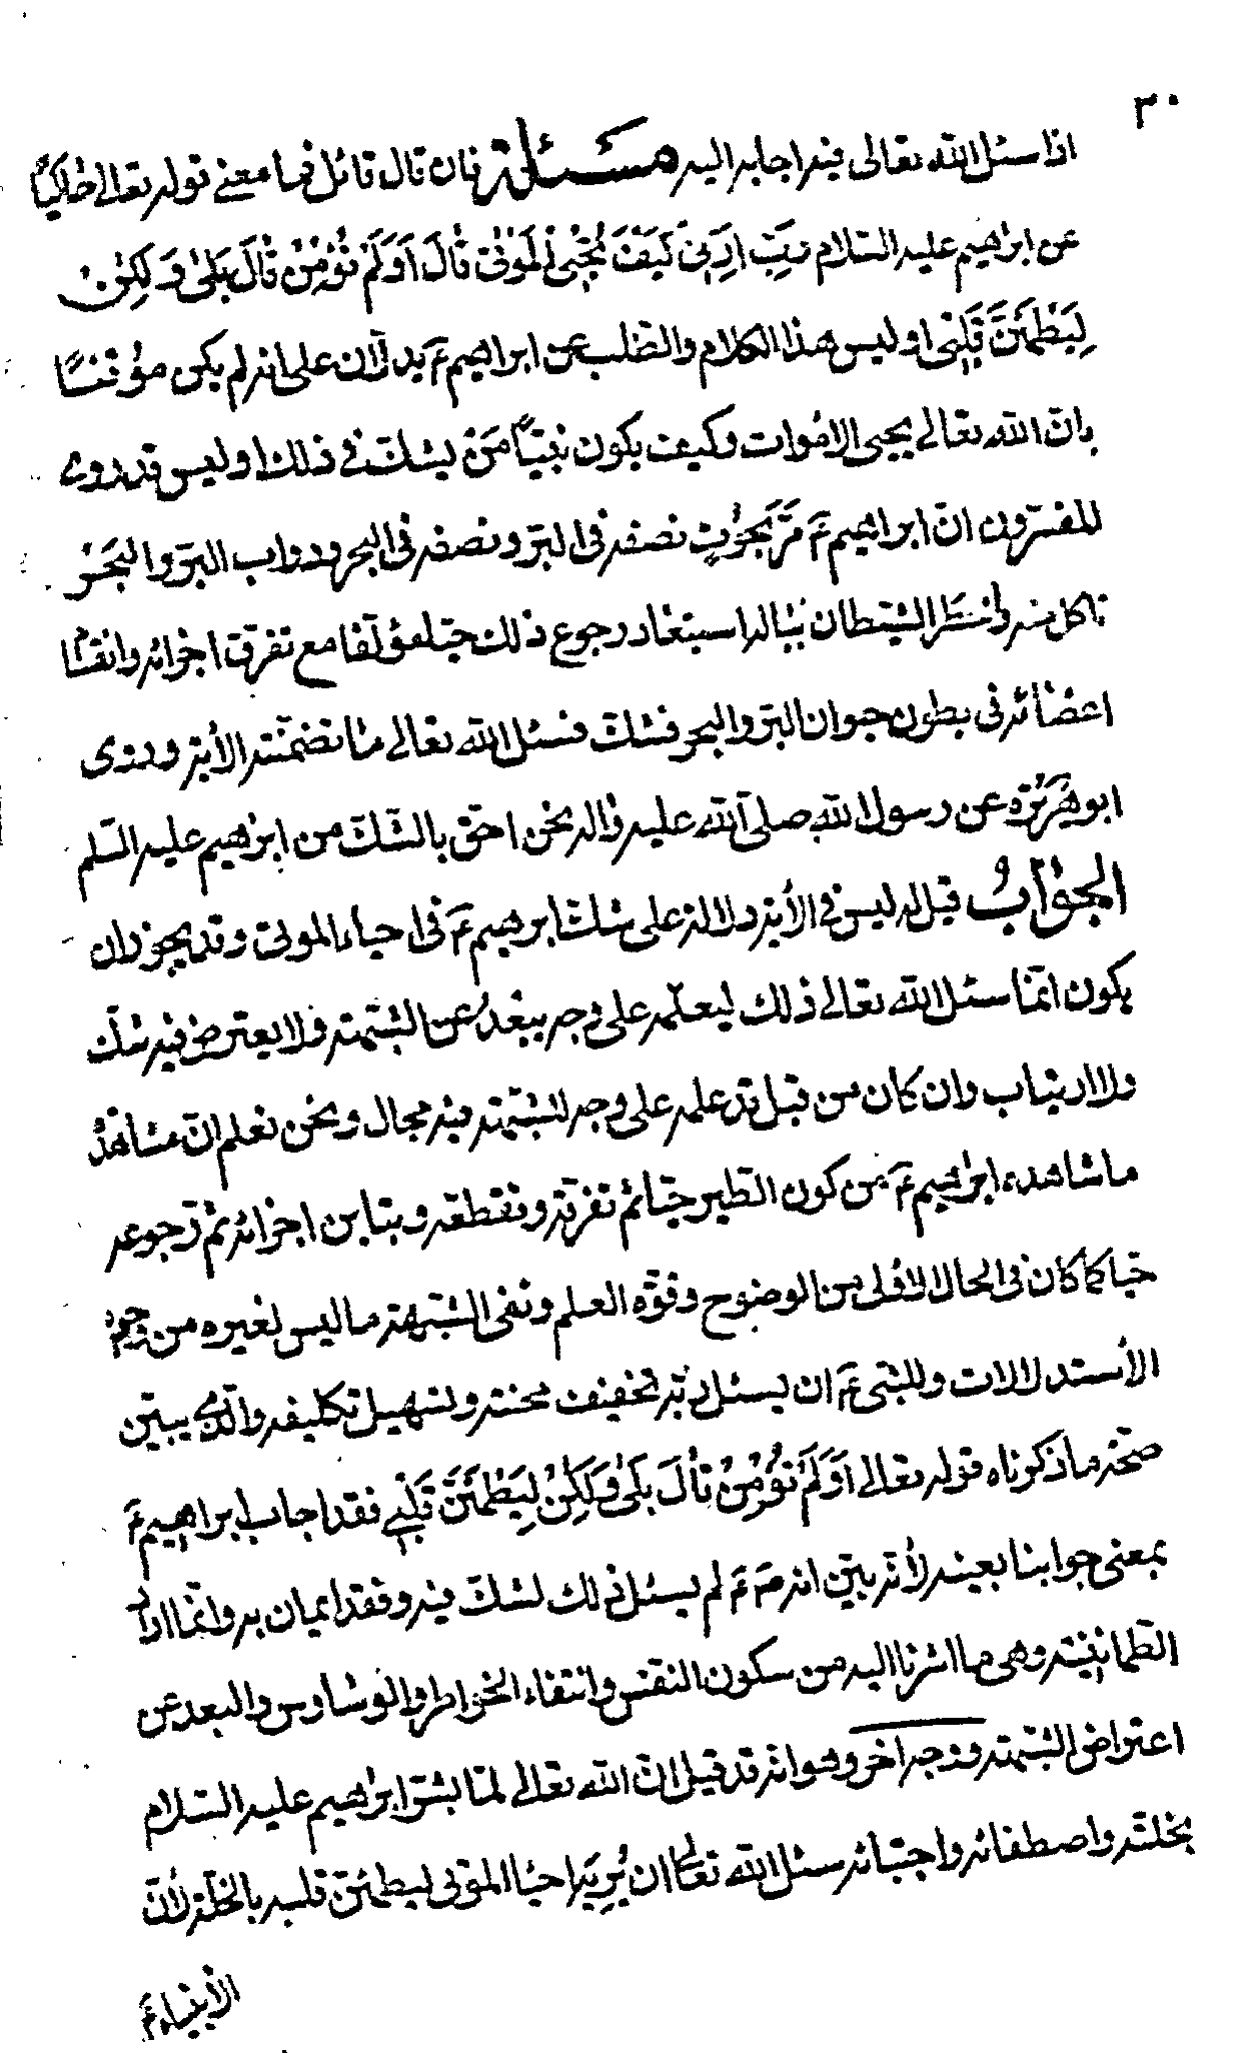 ٣٠
اذا سئل الله تعالى فيه اجابه اليه مسئلة فان قال قائل فما معنى قوله تعالى حاكيا
عن ابرٰهيم عليه السّلام رَبِّ اَرِنِي كَيْفَ تُحْيِي الْمَوْتىٰ قٰالَ اَوَلَمْ تُؤْمِنْ قٰالَ بَلىٰ وَلٰكِنْ
لِيَطْمَئِنَّ قَلْبِي او ليس هذا الكلام والطّلب عن ابراهيم ع يدلّان على انه لم يكن موقنًا
بانّ الله تعالى يحيى الاموات وكيف يكون نبيّاً مَنْ يشكّ فى ذلك او ليس قد روى
المفسّرون انّ ابراهيم ع مَرَّ بحُوتٍ نصفه فى البرّ ونصفه فى البحر ودواب البرّ والبَحْر
تاكل منه واخطر الشّيطان بباله استبعاد رجوع ذلك حيّا مؤلّفا مع تفرّق اجزائه وانقسام
اعضائه فى بطون حيوان البرّ والبحر فشكّ فسئل الله تعالى ما تضمّنته الأية وروى
ابوهُرَيْرَه عن رسول الله صلى الله عليه واله نحن احقّ بالشّكّ من ابرٰهيم عليه السّلم
الجوابُ قيل له ليس فى الأية دلالة على شكّ ابرهيم ع فى احياء الموتى وقد يجوز ان
يكون انّما سئل الله تعالى ذلك ليعلمه على وجه يبعُد عن الشّبهة فلا يعترض فيه شكّ
ولا ارتياب وان كان من قبل قد علمه على وجه للشّبهة فيه مجال ونحن نعلم انّ مشاهدة
ما شاهده ابرٰهيم ع من كون الطّير حيّا ثم تفرّقه وتقطعه وتباين اجزائه ثم رجوعه
حيّا كما كان فى الحال الاولى من الوضوح وقوّه العلم ونفى الشّبهة ما ليس لغيره من وجوه
الأستدلالات وللنّبى ع ان يسئل ربّه تخفيف محنته وتسهيل تكليفه والّذى يبيّن
صحّة ما ذكرناه قوله تعالى اَوَلَمْ تُؤْمِنْ قٰالَ بَلىٰ وَلٰكِنْ لِيَطْمَئِنَّ قَلْبِي فقد اجاب ابراهيم ع
بمعنى جوابنا بعينه لأنّه بيّن انه ع لم يسئل ذلك لشكّ فيه وفقد ايمان به وانّما اراد
الطمانينة وهى ما اشرنا اليه من سكون النّفس وانتفاء الخواطر والوساوس والبعد عن
اعتراض الشّبهة ووجه اخر وهو انّه قد قيل انّ الله تعالى لمّا بشّر ابرٰهيم عليه السّلام
بخلّته واصطفائه واجتبائه سئل الله تعالى ان يُرِيَه احيا الموتى ليطمئنّ قلبه بالخلّة لأنّ
الأنبياء ع